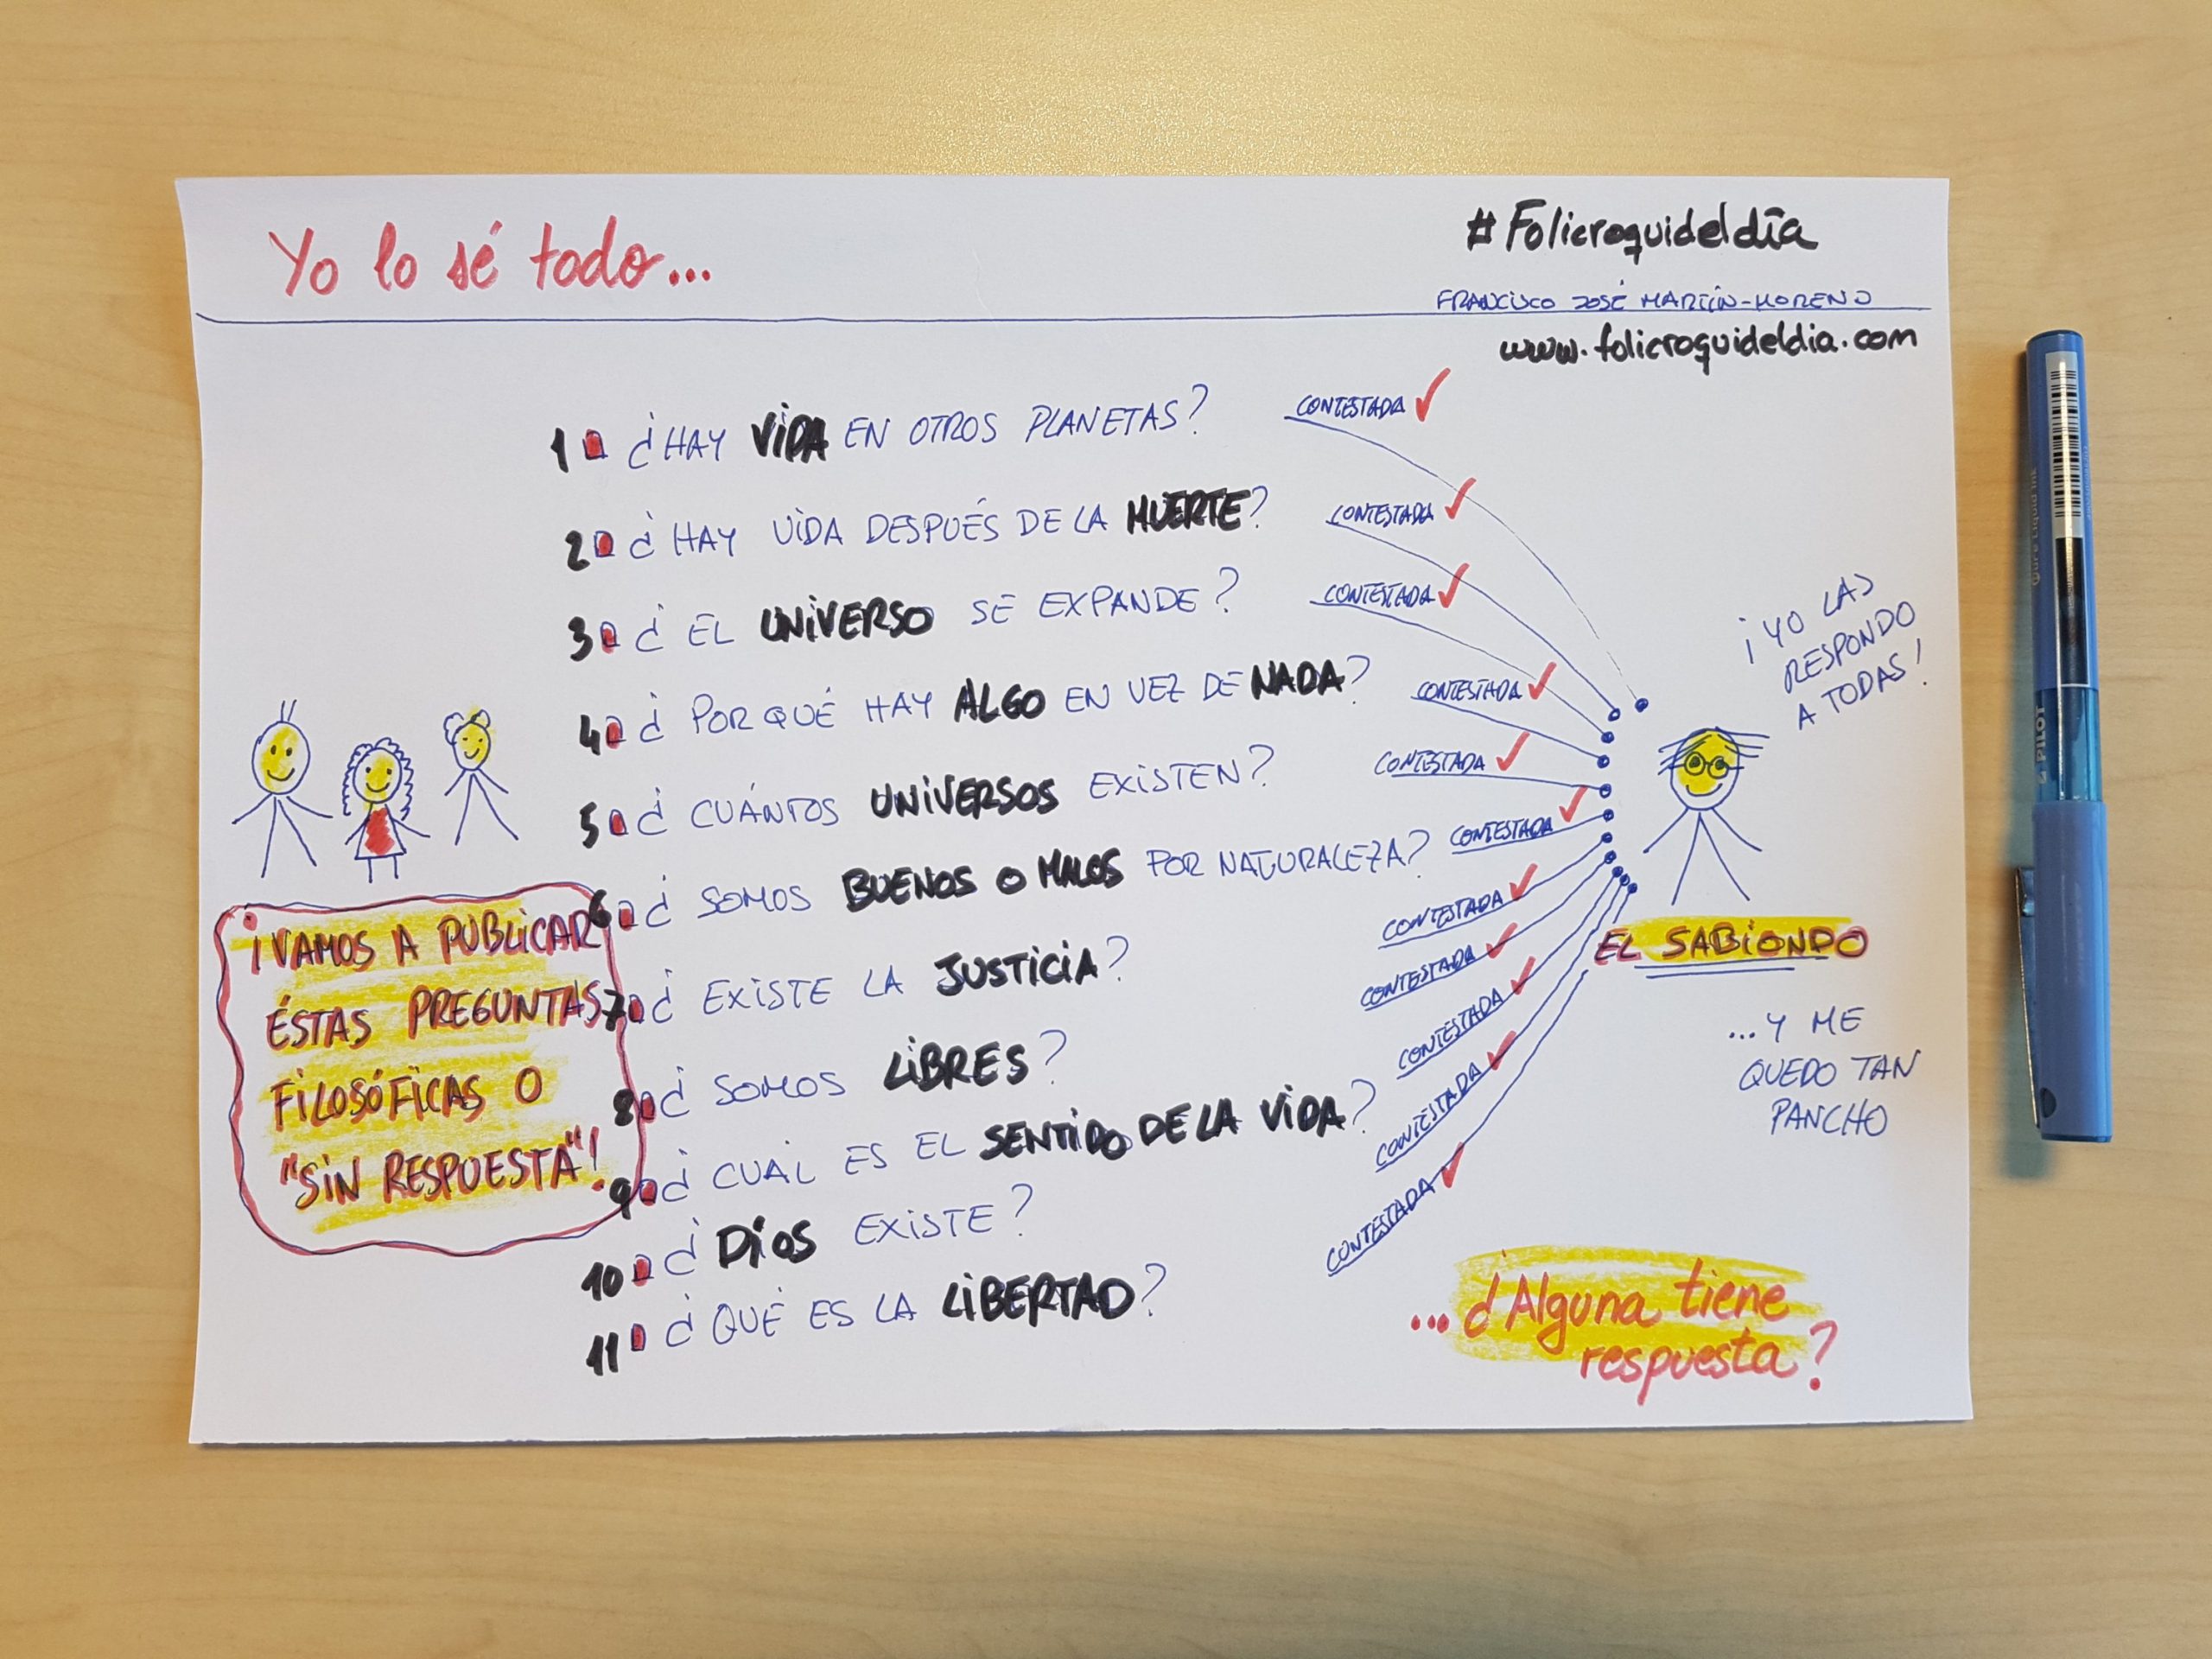 Yo lo sé todo...
#Folicroquideldía
FRANCISCO JOSÉ MARTÍN-MORENO
www.folicroquideldia.com
1 ¿HAY VIDA EN OTROS PLANETAS?
CONTESTADA
2 ¿HAY VIDA DESPUÉS DE LA MUERTE?
CONTESTADA
3 ¿EL UNIVERSO SE EXPANDE?
CONTESTADA
4 ¿POR QUÉ HAY ALGO EN VEZ DE NADA?
CONTESTADA
5 ¿CUÁNTOS UNIVERSOS EXISTEN?
CONTESTADA
6 ¿SOMOS BUENOS O MALOS POR NATURALEZA?
CONTESTADA
7 ¿EXISTE LA JUSTICIA?
CONTESTADA
8 ¿SOMOS LIBRES?
CONTESTADA
9 ¿CUAL ES EL SENTIDO DE LA VIDA?
CONTESTADA
10 ¿DIOS EXISTE?
CONTESTADA
11 ¿QUÉ ES LA LIBERTAD?
CONTESTADA
¡VAMOS A PUBLICAR
ÉSTAS PREGUNTAS
FILOSÓFICAS O
"SIN RESPUESTA"!
¡YO LAS
RESPONDO
A TODAS!
EL SABIONDO
...Y ME
QUEDO TAN
PANCHO
...¿Alguna tiene
respuesta?
PILOT